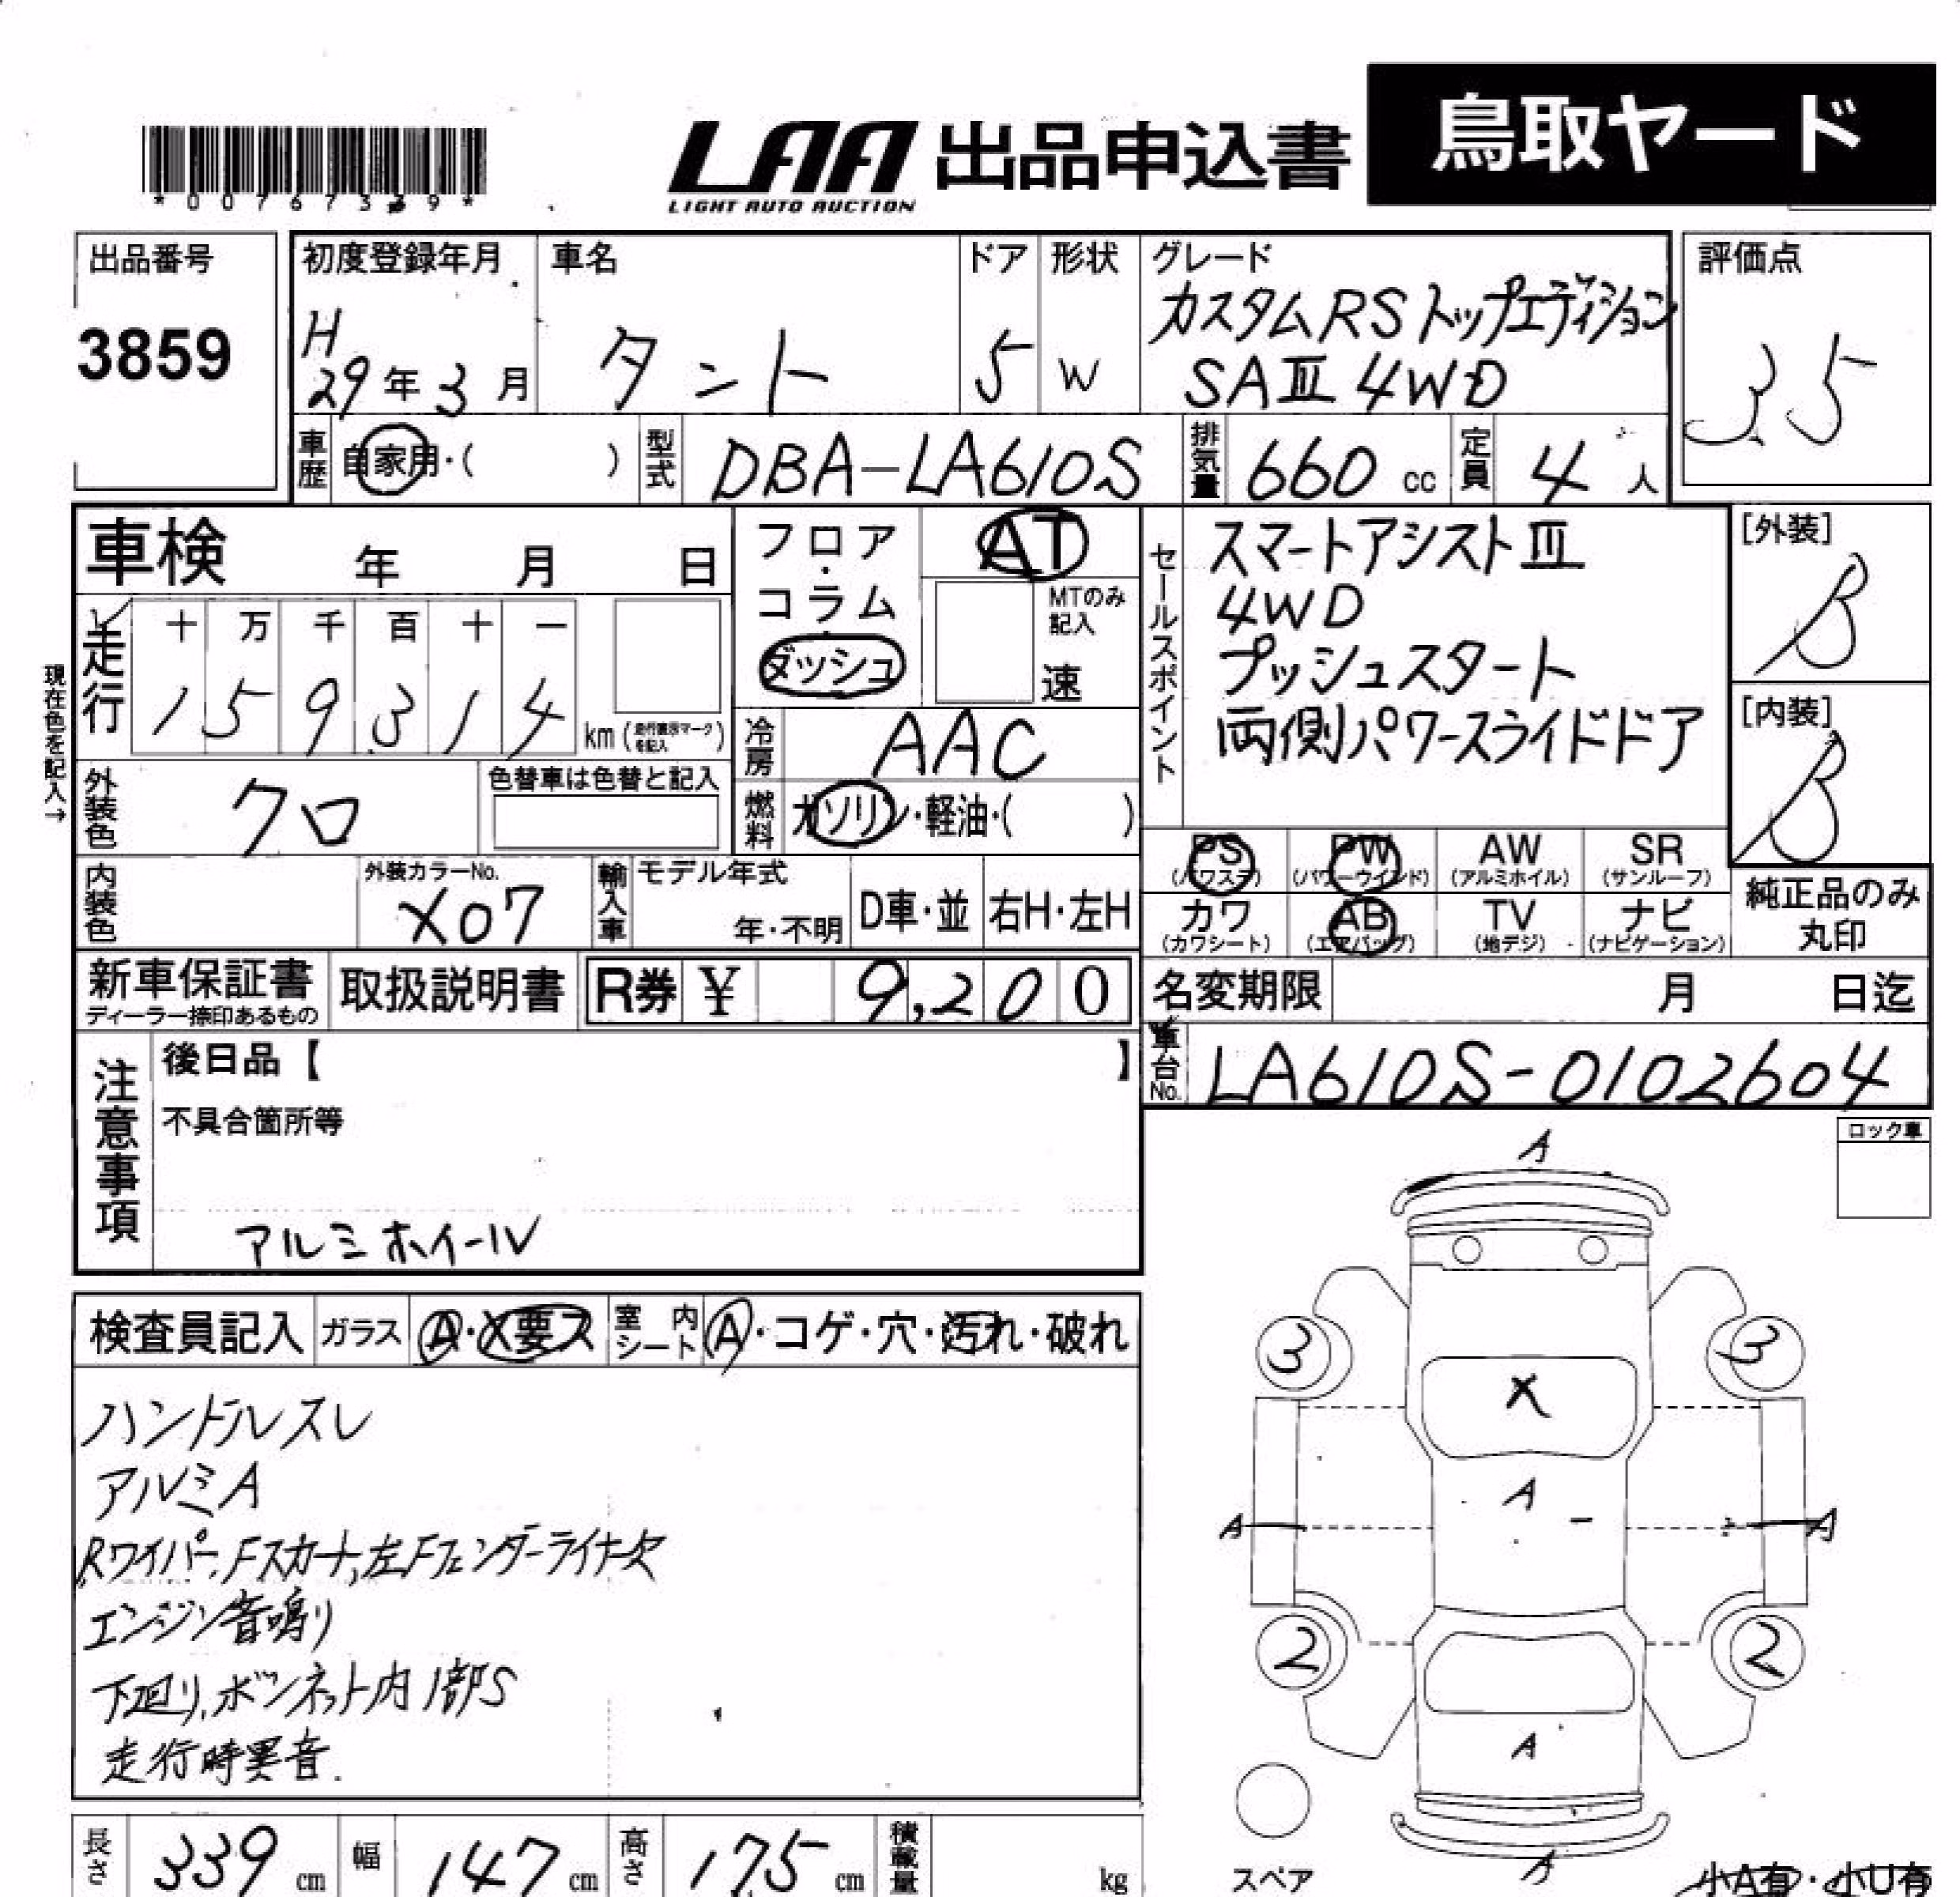 LAA 出品申込書 鳥取ヤード
LIGHT AUTO AUCTION
出品番号 初度登録年月 車名 ドア 形状 グレード 評価点
3859 H 29年3月 タント 5 W カスタムRSトップエディション 3.5
SAⅢ 4WD
車歴 自家用・( ) 型式 DBA-LA610S 排気量 660 cc 定員 4 人
車検 年 月 日 フロア・コラム・ダッシュ AT
MTのみ記入 速
セールスポイント スマートアシストⅢ
4WD
プッシュスタート
両側パワースライドドア
[外装] B
[内装] B
現在色を記入→
走行 十 万 千 百 十 一
1 5 9 3 1 4 km (走行裏示マークを記入)
冷房 AAC
外装色 クロ 色替車は色替と記入 燃料 ガソリン・軽油・( )
PS (パワステ) PW (パワーウインド) AW (アルミホイル) SR (サンルーフ)
カワ (カワシート) AB (エアバッグ) TV (地デジ) ナビ (ナビゲーション) 純正品のみ丸印
内装色 外装カラーNo. X07 輸入車 モデル年式 年・不明 D車・並 右H・左H
新車保証書 取扱説明書 R券 ¥ 9,200 名変期限 月 日迄
ディーラー捺印あるもの
車台No. LA610S-0102604
注意事項 後日品【 】
不具合箇所等
アルミホイール
ロック車
検査員記入 ガラス A・X要ス 室内シート A・コゲ・穴・汚れ・破れ
ハンドルスレ
アルミA
Rワイパー、Fスカート、左Fフェンダーライナー欠
エンジン音鳴り
下廻り、ボンネット内1部S
走行時異音.
A
3 3
X
A
A A
2 2
A
A
スペア 小A有・小U有
長さ 339 cm 幅 147 cm 高さ 175 cm 積載量 kg